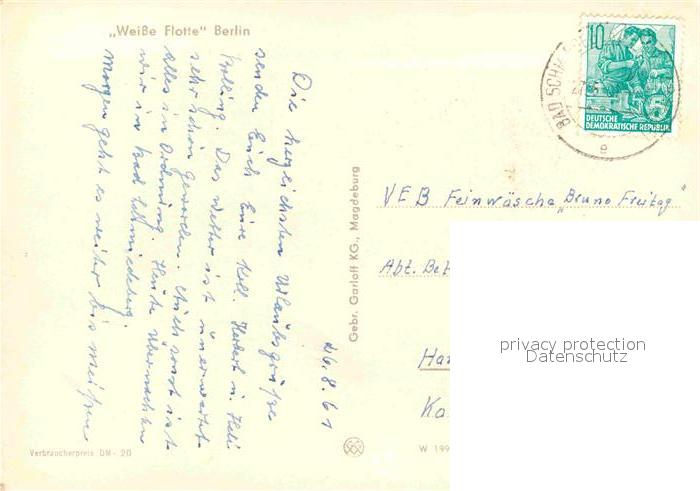 „Weiße Flotte“ Berlin
26.8.61
Die herzlichsten Urlaubsgrüße
senden Euch Eure Koll. Herbert u. Heli
Das Wetter ist unerwartet
sehr schön geworden. Auch sonst ist
Alles in Ordnung. Heute übernachten
wir in Bad Schmiedeberg.
Morgen geht es weiter bis Meißen
Verbraucherpreis DM -.20
Gebr. Garloff KG., Magdeburg
W 199
BAD SCHM
10
5
DEUTSCHE
DEMOKRATISCHE REPUBLIK
e
VEB Feinwäsche „Bruno Freitag“
Abt. Bet
Har
privacy protection
Datenschutz